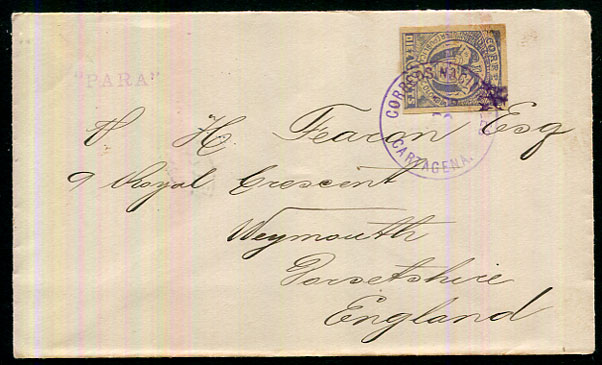 "PARA"
CORREOS NAC
CARTAGENA.
A H. Feacon Esq
9 Royal Crescent
Weymouth
Dorsetshire
England